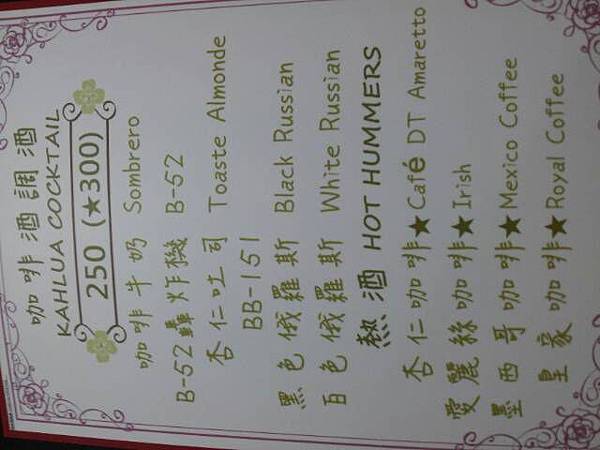 咖啡酒調酒
KAHLUA COCKTAIL
250 (★300)
咖啡牛奶 Sombrero
B-52轟炸機 B-52
杏仁吐司 Toaste Almonde
BB-151
黑色俄羅斯 Black Russian
白色俄羅斯 White Russian
熱酒 HOT HUMMERS
杏仁咖啡★Café DT Amaretto
愛麗絲咖啡★Irish
墨西哥咖啡★Mexico Coffee
皇家咖啡★Royal Coffee